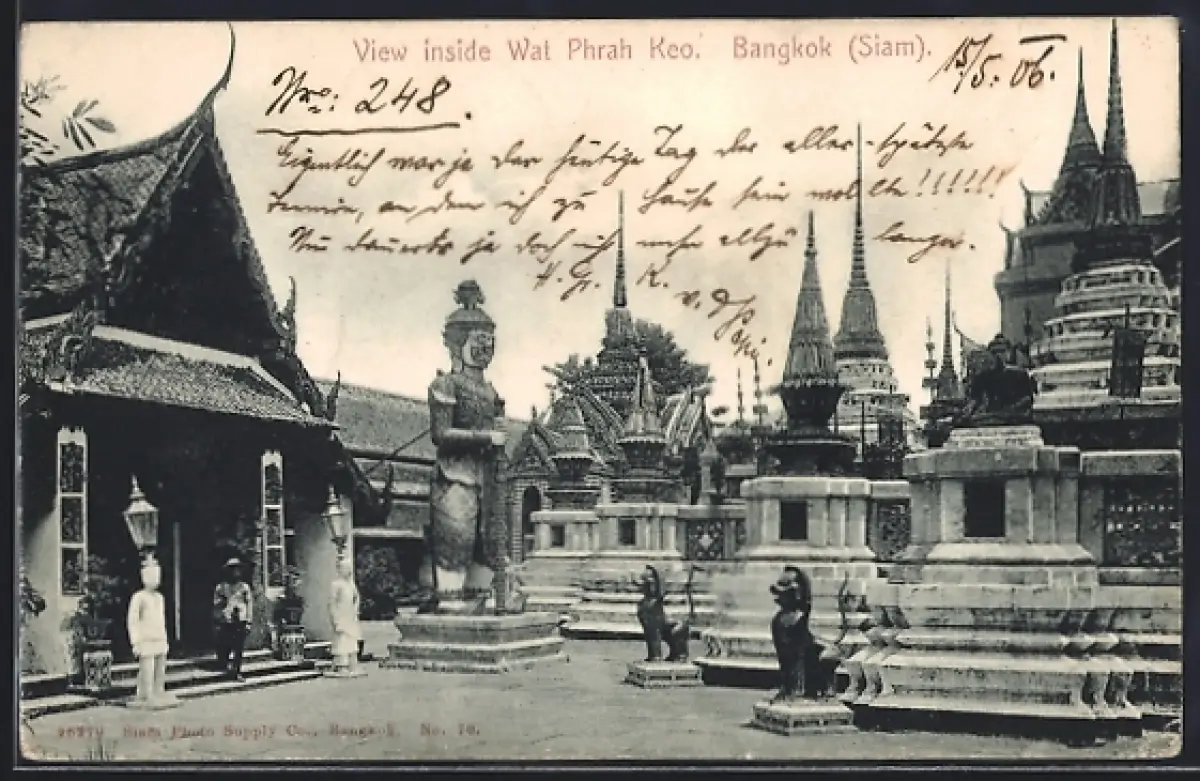 View inside Wat Phrah Keo. Bangkok (Siam).
15/5. 06.
Nro: 248.
Eigentlich war ja der heutige Tag der aller-späteste
Termin, an dem ich zu Hause sein wollte!!!!!!
Nun dauerts ja doch noch mehr allzu lange.
H. Gr. K.
v. 
26270 Siam Photo Supply Co., Bangkok. No. 70.